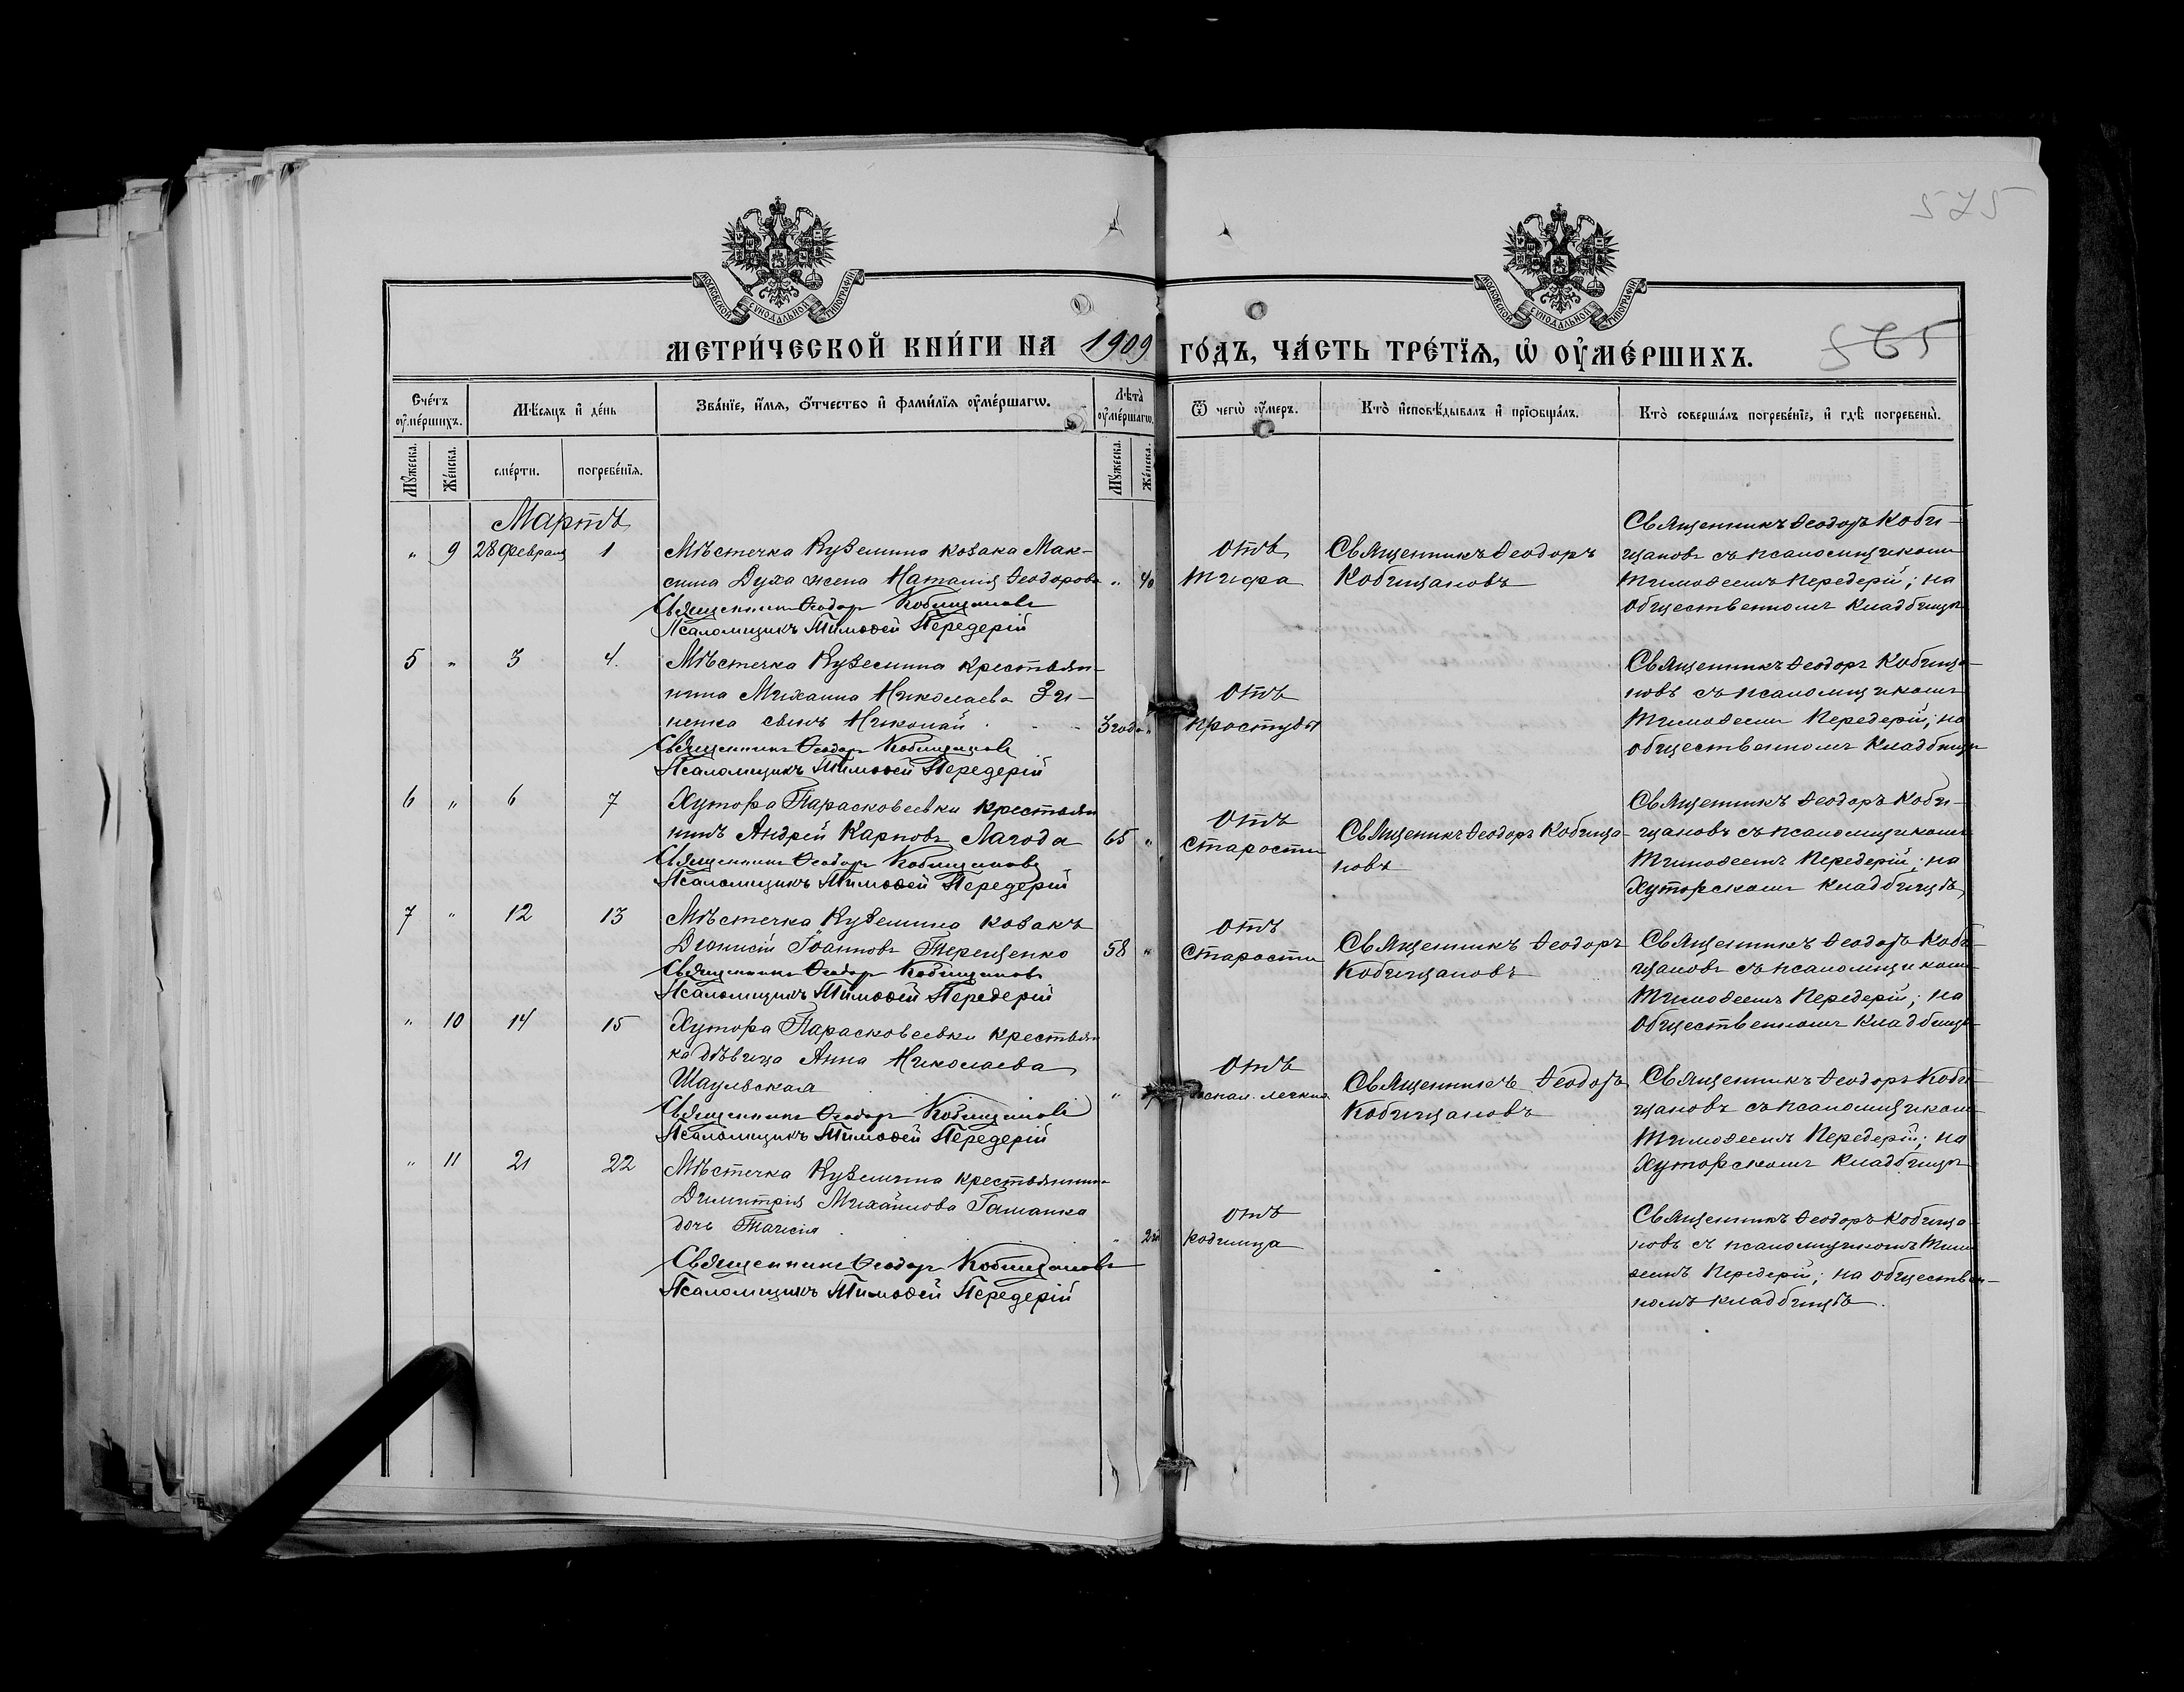 575
МОСКОВСКОЙ СѴНОДАЛЬНОЙ ТИПОГРАФІИ
МОСКОВСКОЙ СѴНОДАЛЬНОЙ ТИПОГРАФІИ
МЕТРИ́ЧЕСКОЙ КНИ́ГИ НА 1909 ГО́ДЪ, ЧА́СТЬ ТРЕ́ТЇѦ, Ѡ҆ ОУ҆МЕ́РШИХЪ.
565
Сче́тъ оу҆ме́ршихъ.
Мѣ́сяцъ и҆ де́нь
Зва́нїе, и҆́мѧ, ѻ҆́тчество и҆ фами́лїѧ оу҆ме́ршагѡ.
Лѣ́та̀ оу҆ме́ршагѡ.
Ѿ чегѡ̀ оу҆́меръ.
Кто̀ и҆сповѣ́дывалъ и҆ прїѡбща́лъ.
Кто̀ соверша́лъ погребе́нїе, и҆ гдѣ̀ погребены̀.
Мꙋ́жеска.
Же́нска.
сме́рти.
погребе́нїѧ.
Мꙋ́жеска.
Же́нска.
Мартъ
" 9 28 февраля 1
Мѣстечка Куземина козака Мак-
сима Духа жена Наталія Ѳеодорова " 40
Священникъ Ѳеодоръ Кобищановъ
Псаломщикъ Тимоѳей Передерій
отъ
тифа
Священникъ Ѳеодоръ
Кобищановъ
Священникъ Ѳеодоръ Коби-
щановъ съ псаломщикомъ
Тимоѳеемъ Передерій; на
общественномъ кладбищѣ
5 " 3 4.
Мѣстечка Куземина крестьян-
нина Михаила Николаева Зи-
ненка сынъ Николай 3 года "
Священникъ Ѳеодоръ Кобищановъ
Псаломщикъ Тимоѳей Передерій
отъ
простуды
Священникъ Ѳеодоръ Кобища-
новъ съ псаломщикомъ
Тимоѳеемъ Передерій; на
общественномъ кладбищѣ
6 " 6 7
Хутора Парасковеевки крестьян
нинъ Андрей Карповъ Лагода 65 "
Священникъ Ѳеодоръ Кобищановъ
Псаломщикъ Тимоѳей Передерій
отъ
старости
Священникъ Ѳеодоръ Кобища-
новъ
Священникъ Ѳеодоръ Коби-
щановъ съ псаломщикомъ
Тимоѳеемъ Передерій; на
Хуторскомъ кладбищѣ
7 " 12 13
Мѣстечка Куземина козакъ
Діонисій Іоанновъ Терещенко 58 "
Священникъ Ѳеодоръ Кобищановъ
Псаломщикъ Тимоѳей Передерій
отъ
старости
Священникъ Ѳеодоръ
Кобищановъ
Священникъ Ѳеодоръ Коби-
щановъ съ псаломщикомъ
Тимоѳеемъ Передерій; на
общественномъ кладбищѣ
" 10 14 15
Хутора Парасковеевки крестьян
ка дѣвица Анна Николаева
Шаулвская "
Священникъ Ѳеодоръ Кобищановъ
Псаломщикъ Тимоѳей Передерій
отъ
легкихъ
Священникъ Ѳеодоръ
Кобищановъ
Священникъ Ѳеодоръ Коби-
щановъ съ псаломщикомъ
Тимоѳеемъ Передерій; на
Хуторскомъ кладбищѣ
" 11 21 22
Мѣстечка Куземина крестьянина
Димитрія Михайлова Гашанка
дочь Таисія " 2
Священникъ Ѳеодоръ Кобищановъ
Псаломщикъ Тимоѳей Передерій
отъ
родимца
Священникъ Ѳеодоръ Кобища-
новъ съ псаломщикомъ Тимо
ѳеемъ Передерій; на обществен-
номъ кладбищѣ.